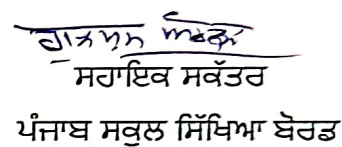 ਸਹਾਇਕ ਸਕੱਤਰ
ਪੰਜਾਬ ਸਕੂਲ ਸਿੱਖਿਆ ਬੋਰਡ